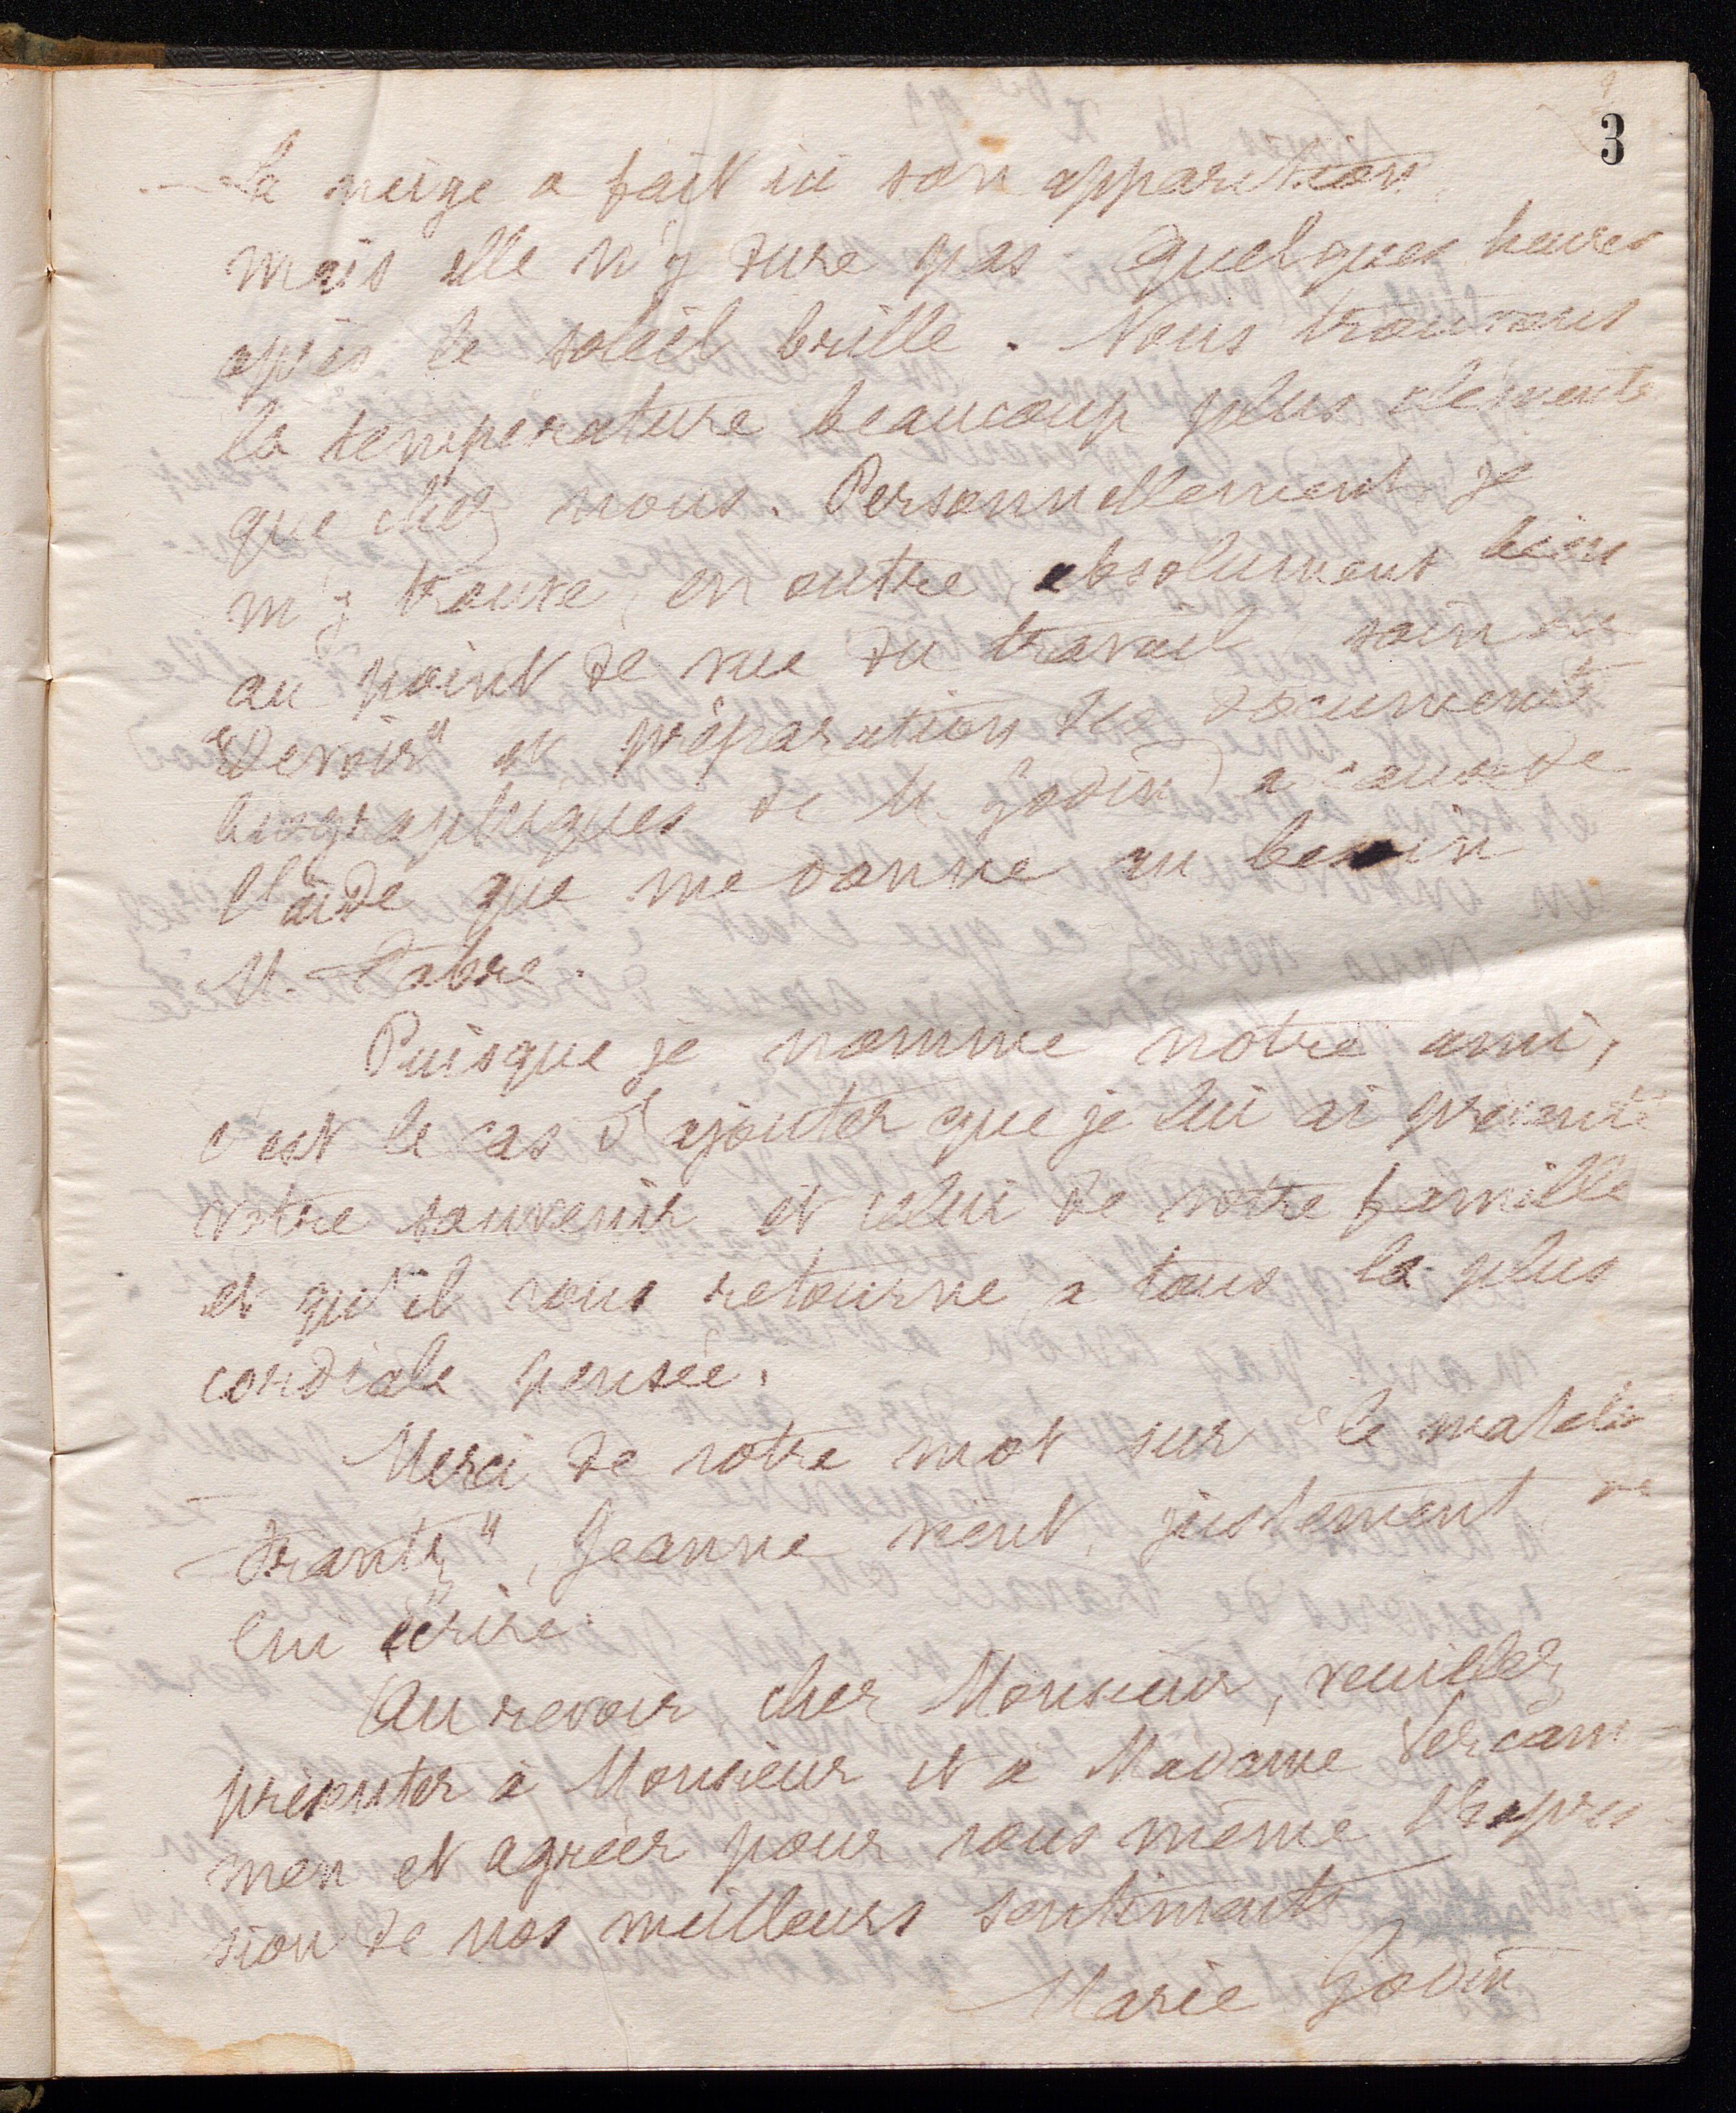 3
La neige a fait ici son apparition
mais elle n'y dure pas. Quelques heures
après le soleil brille. Nous trouvons
la température beaucoup plus clémente
que chez nous. Personnellement je
m'y trouve, en outre, absolument bien
au point de vue du travail, soin du
"Devoir" et préparation des documents
biographiques de M. Godin, à cause de
l'aide que me donne au besoin
M. Fabre.
Puisque je nomme notre ami,
c'est le cas d'ajouter que je lui ai présenté
votre souvenir et celui de votre famille
et qu'il vous retourne à tous la plus
cordiale pensée.
Merci de votre mot sur "le
Franty", Jeanne vient justement de
lui écrire.
Au revoir cher Monsieur, veuillez
présenter à Monsieur et à Madame Vercam-
men et agréer pour vous même l'expres-
sion de nos meilleurs sentiments
Marie Godin